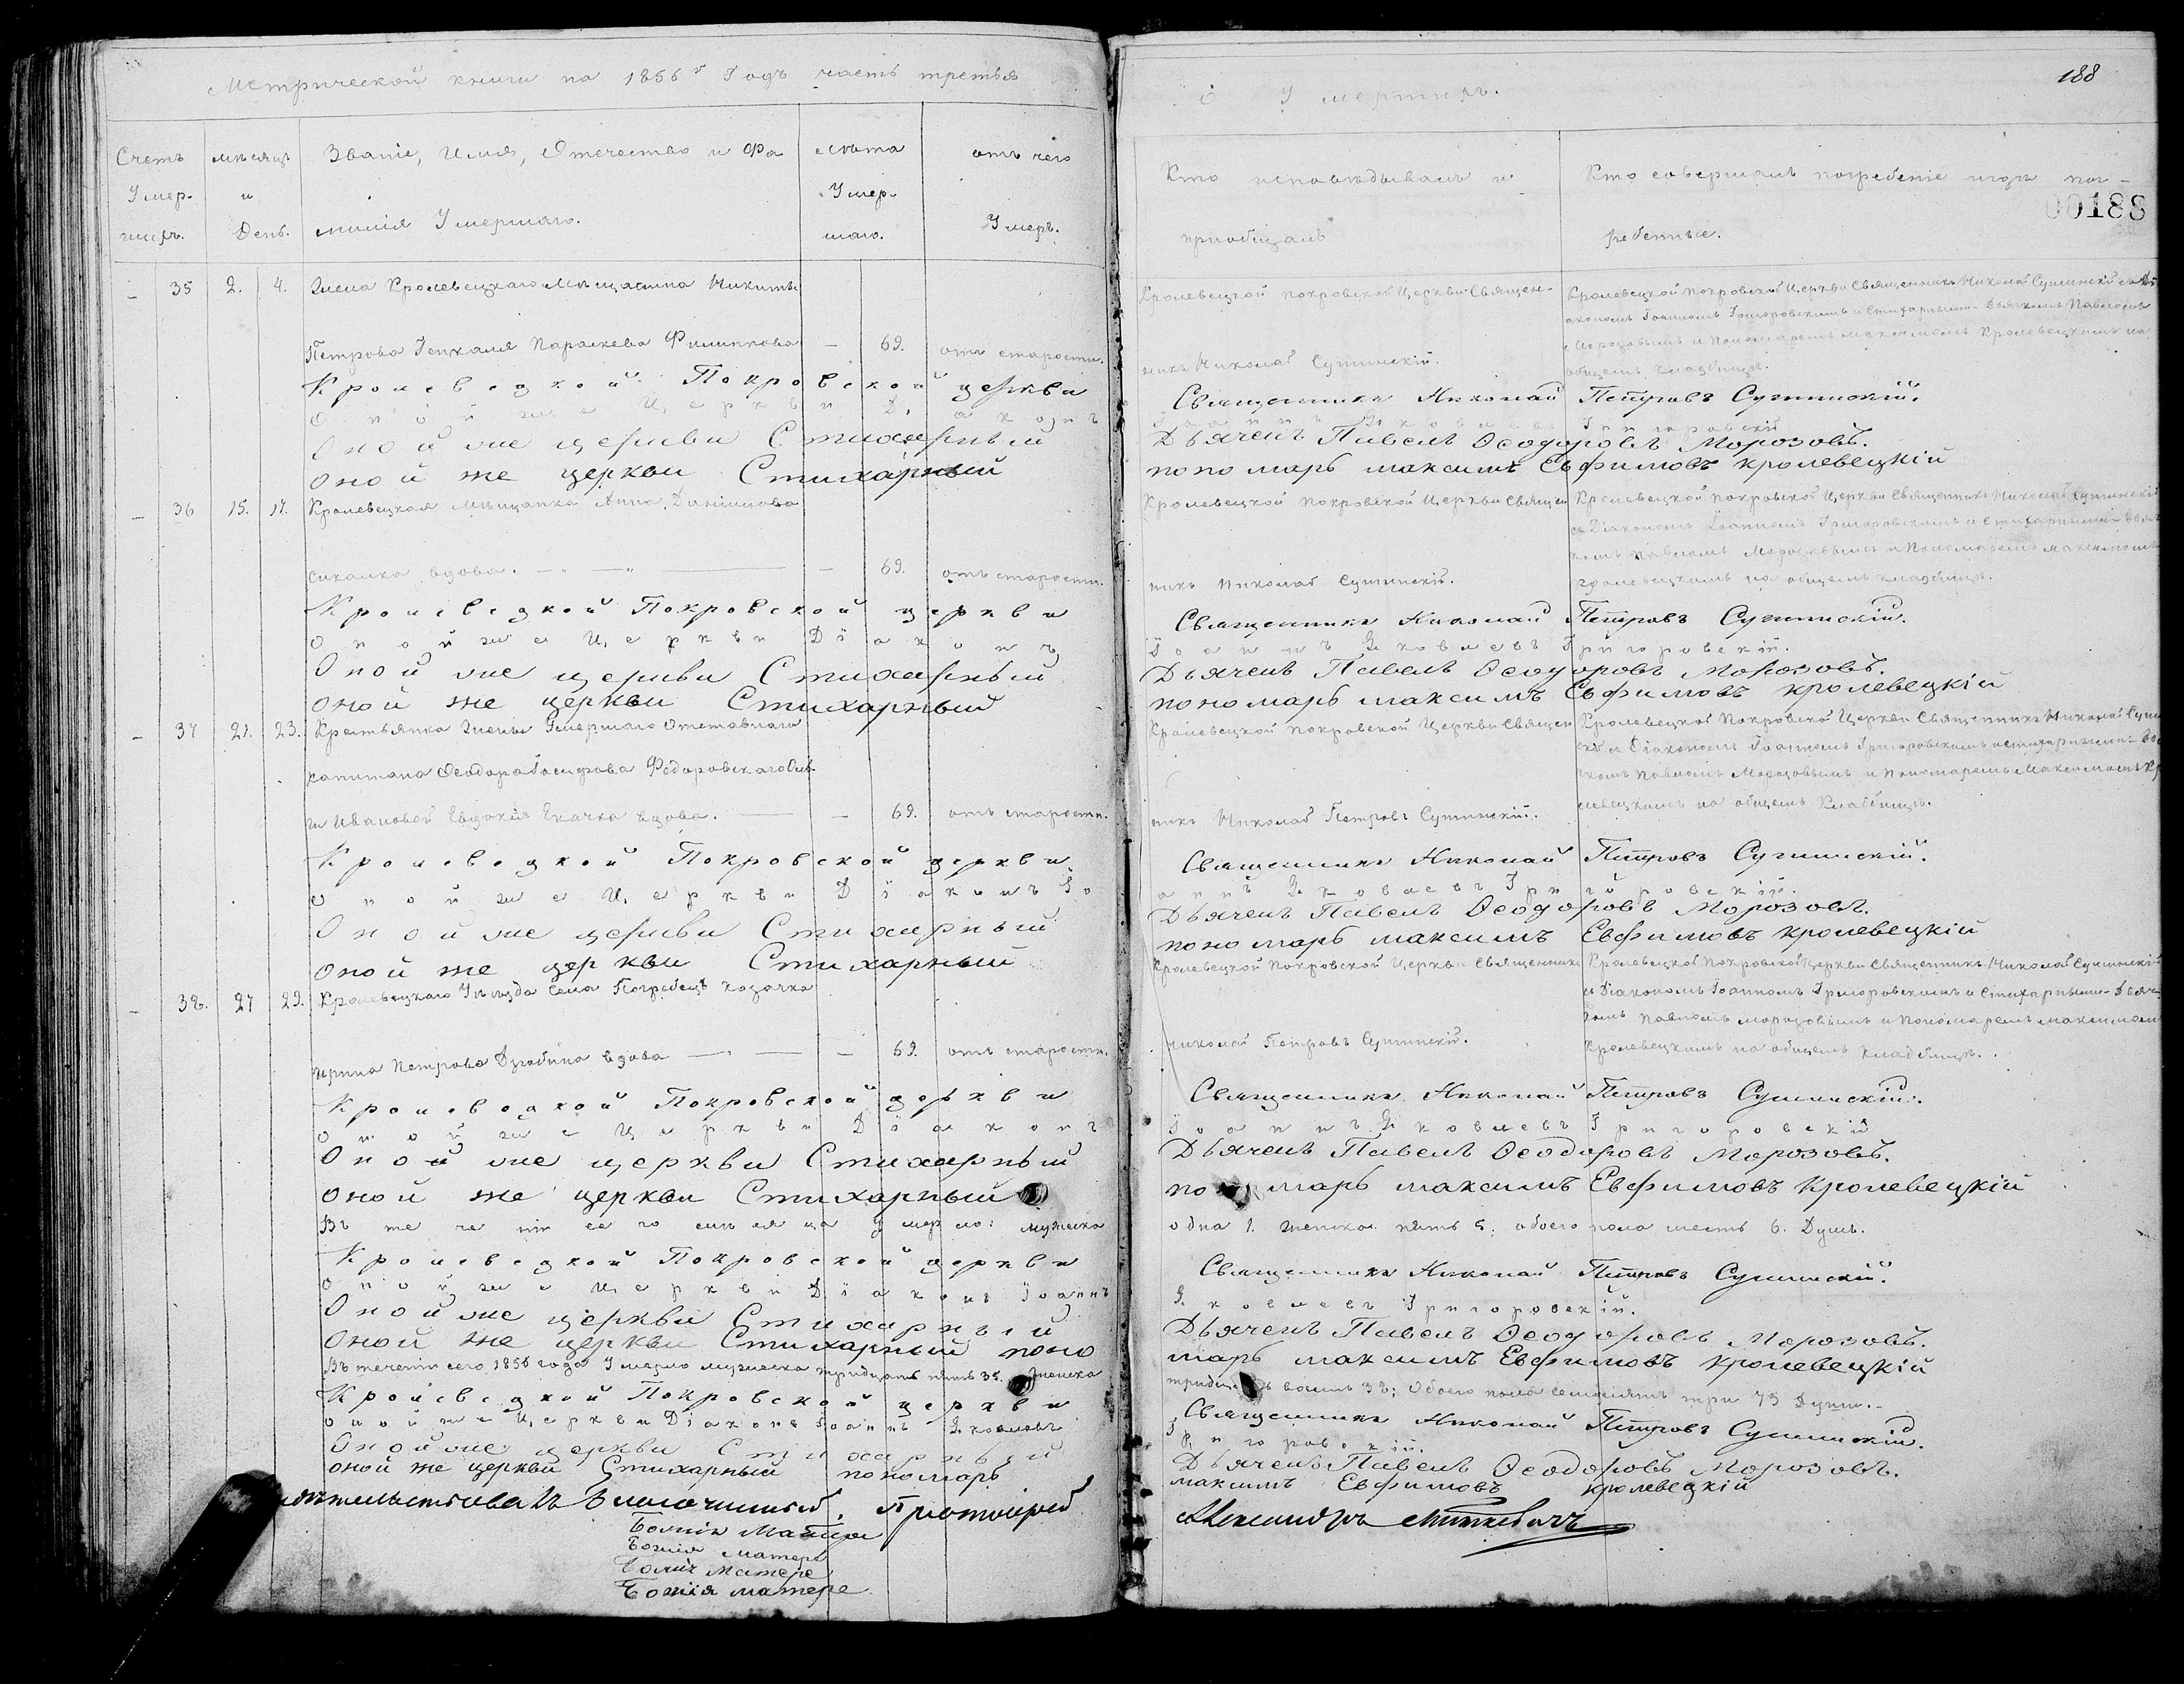 Метрической книги на 1856й Годъ часть третья
Счетъ Умер-шихъ.
мѣсяцъ и День.
Званіе, Имя, Отечество и Фамилія Умершаго.
лѣта Умершаго.
отъ чего Умеръ.
35 2. 4. Жена Кролевецкаго Мѣщанина Никиты
Петрова Параскева Филиппова — 69. отъ старости.
Кролевецкой Покровской церкви
Оной же Церкви Діаконъ
Оной же церкви Стихарный
оной же церкви Стихарный
36 15. 17. Кролевецкая Мѣщанка Анна Даніилова
вдова. — 69. отъ старости.
Кролевецкой Покровской церкви
Оной же Церкви Діаконъ
Оной же церкви Стихарный
оной же церкви Стихарный
37 21. 23. Крестьянка Жены Умершаго Отставнаго
капитана Ѳеодора Іосифова Федоровскаго
Ивановой Евдокія Ткачка вдова. — 69. отъ старости.
Кролевецкой Покровской церкви
Оной же Церкви Діаконъ Іо
Оной же церкви Стихарный
оной же церкви Стихарный
38. 27 29. Кролевецкаго Уѣзда Села Погребецъ козачка
Ирина Петрова вдова — 69. отъ старости.
Кролевецкой Покровской церкви
Оной же Церкви Діаконъ
Оной же церкви Стихарный
оной же церкви Стихарный
Въ теченіи сего мѣсяца умерло: мужеска
Кролевецкой Покровской церкви
Оной же Церкви Діаконъ Іоаннъ
Оной же церкви Стихарный
оной же церкви Стихарный поно
Въ теченіи сего 1856 года Умерло мужеска тридцать пять 35. женска
Кролевецкой Покровской церкви
Оной же Церкви Діаконъ Іоаннъ Яковлевъ
Оной же церкви Стихарный
оной же церкви Стихарный пономарь
Благочинный, Протоіерей
Божія Матере
Божія Матере
Божія Матере
Божія матере
188
О Умершихъ.
Кто исповѣдывалъ и пріобщалъ
Кто совершалъ погребеніе и гдѣ погребенные.
00188
Кролевецкой покровской Церкви Священ-
никъ Николай Сушинскій.
Кролевецкой покровской Церкви Священникъ Николай Сушинскій съ Ді
акономъ Іоанномъ Григоровскимъ и Стихарными Дьячкомъ Павломъ
Морозовымъ и Пономаремъ Максимомъ Кролевецкимъ на
общемъ кладбищѣ.
Священникъ Николай Петровъ Сушинскій.
Іоаннъ Яковлевъ Григоровскій
Дьячекъ Павелъ Ѳеодоровъ Морозовъ.
пономарь максимъ Евфимовъ кролевецкій
Кролевецкой покровской Церкви Священ
никъ Николай Сушинскій.
Кролевецкой покровской Церкви Священникъ Николай Сушинскій
съ Діакономъ Іоанномъ Григоровскимъ и Стихарными Дьяч
комъ Павломъ Морозовымъ и Пономаремъ максимомъ
кролевецкимъ на общемъ кладбищѣ.
Священникъ Николай Петровъ Сушинскій.
Іоаннъ Яковлевъ Григоровскій.
Дьячекъ Павелъ Ѳеодоровъ Морозовъ.
пономарь максимъ Евфимовъ кролевецкій
Кролевецкой покровской Церкви Священ
никъ Николай Петровъ Сушинскій.
Кролевецкой Покровской Церкви Священникъ Николай Суши
Діакономъ Іоанномъ Григоровскимъ и стихарными Дья
чкомъ Павломъ Морозовымъ и Пономаремъ Максимомъ Кр
левецкимъ на общемъ Кладбищѣ.
Священникъ Николай Петровъ Сушинскій.
аннъ Яковлевъ Григоровскій.
Дьячекъ Павелъ Ѳеодоровъ Морозовъ.
пономарь максимъ Евфимовъ кролевецкій
Кролевецкой Покровской Церкви Священникъ
николай Петровъ Сушинскій.
Кролевецкой Покровской Церкви Священникъ Николай Сушинскій
съ Діакономъ Іоанномъ Григоровскимъ и Стихарными Дьяч-
комъ Павломъ морозовымъ и пономаремъ максимом
кролевецкимъ на общемъ кладбищѣ.
Священникъ Николай Петровъ Сушинскій.
Іоаннъ Яковлевъ Григоровскій
Дьячекъ Павелъ Ѳеодоровъ Морозовъ.
пономарь максимъ Евфимовъ Кролевецкій
одна 1. женска пять 5; обоего пола шесть 6. Душъ.
Священникъ Николай Петровъ Сушинскій.
Яковлевъ Григоровскій.
Дьячекъ Павелъ Ѳеодоровъ Морозовъ.
марь максимъ Евфимовъ кролевецкій
тридцать восмъ 38; Обоего пола семдесятъ три 73 Души.
Священникъ Николай Петровъ Сушинскій.
Григоровскій.
Дьячекъ Павелъ Ѳеодоровъ Морозовъ.
максимъ Евфимовъ кролевецкій
Александръ